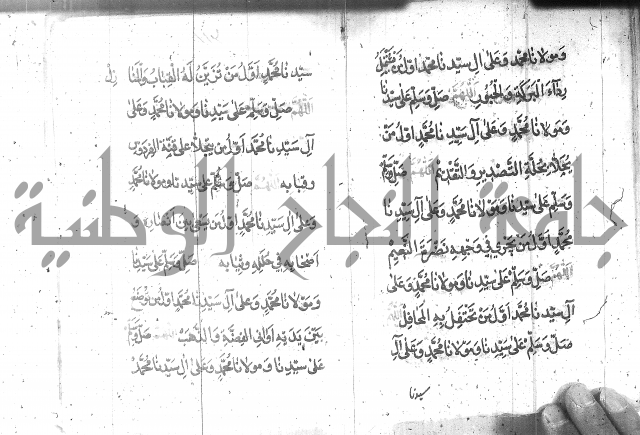 وَمَوْلَانَا مُحَمَّدٍ وَعَلَىٰ آلِ سَيِّدِنَا مُحَمَّدٍ اوَّلُ مَنْ
الْبَرَكَةِ اللَّهُمَّ صَلِّ وَسَلِّمْ عَلَى سَيِّدِنَا
وَمَوْلَانَا مُحَمَّدٍ وَعَلَىٰ آلِ سَيِّدِنَا مُحَمَّدٍ اوَّلُ مَنْ
التَّصْدِيرِ وَالتَّقْدِيمِ اللَّهُمَّ صَلِّ
وَسَلِّمْ عَلَىٰ سَيِّدِنَا وَمَوْلَانَا مُحَمَّدٍ وَعَلَىٰ آلِ سَيِّدِنَا
مُحَمَّدٍ اوَّلُ مَنْ فِي وَجْهِهِ نَضْرَةُ النَّعِيمِ
اللَّهُمَّ صَلِّ وَسَلِّمْ عَلَىٰ سَيِّدِنَا وَمَوْلَانَا مُحَمَّدٍ وَعَلَىٰ
آلِ سَيِّدِنَا مُحَمَّدٍ اوَّلُ مَنْ تَحْتَفِلُ بِهِ الْمَحَافِلُ
صَلِّ وَسَلِّمْ عَلَىٰ سَيِّدِنَا وَمَوْلَانَا مُحَمَّدٍ وَعَلَىٰ آلِ
سيدنا
سَيِّدِنَا مُحَمَّدٍ اوَّلُ مَنْ تُزَيَّنُ لَهُ الْقِبَابُ
اللَّهُمَّ صَلِّ وَسَلِّمْ عَلَىٰ سَيِّدِنَا وَمَوْلَانَا مُحَمَّدٍ وَعَلَىٰ
آلِ سَيِّدِنَا مُحَمَّدٍ اوَّلُ مَنْ عَلَىٰ
وقبابه اللهم صل وسلم على سيدنا ومولانا محمد
وَعَلَىٰ آلِ سَيِّدِنَا مُحَمَّدٍ اوَّلُ مَنْ
اصحابه في وقبابه صل وسلم على سيدنا
وَمَوْلَانَا مُحَمَّدٍ وَعَلَىٰ آلِ سَيِّدِنَا مُحَمَّدٍ اوَّلُ مَنْ تُوضَعُ
بَيْنَ يَدَيْهِ أَوَانِي الْفِضَّةِ وَالذَّهَبِ
عَلَىٰ سَيِّدِنَا وَمَوْلَانَا مُحَمَّدٍ وَعَلَىٰ آلِ سَيِّدِنَا مُحَمَّدٍ
جامعة النجاح الوطنية